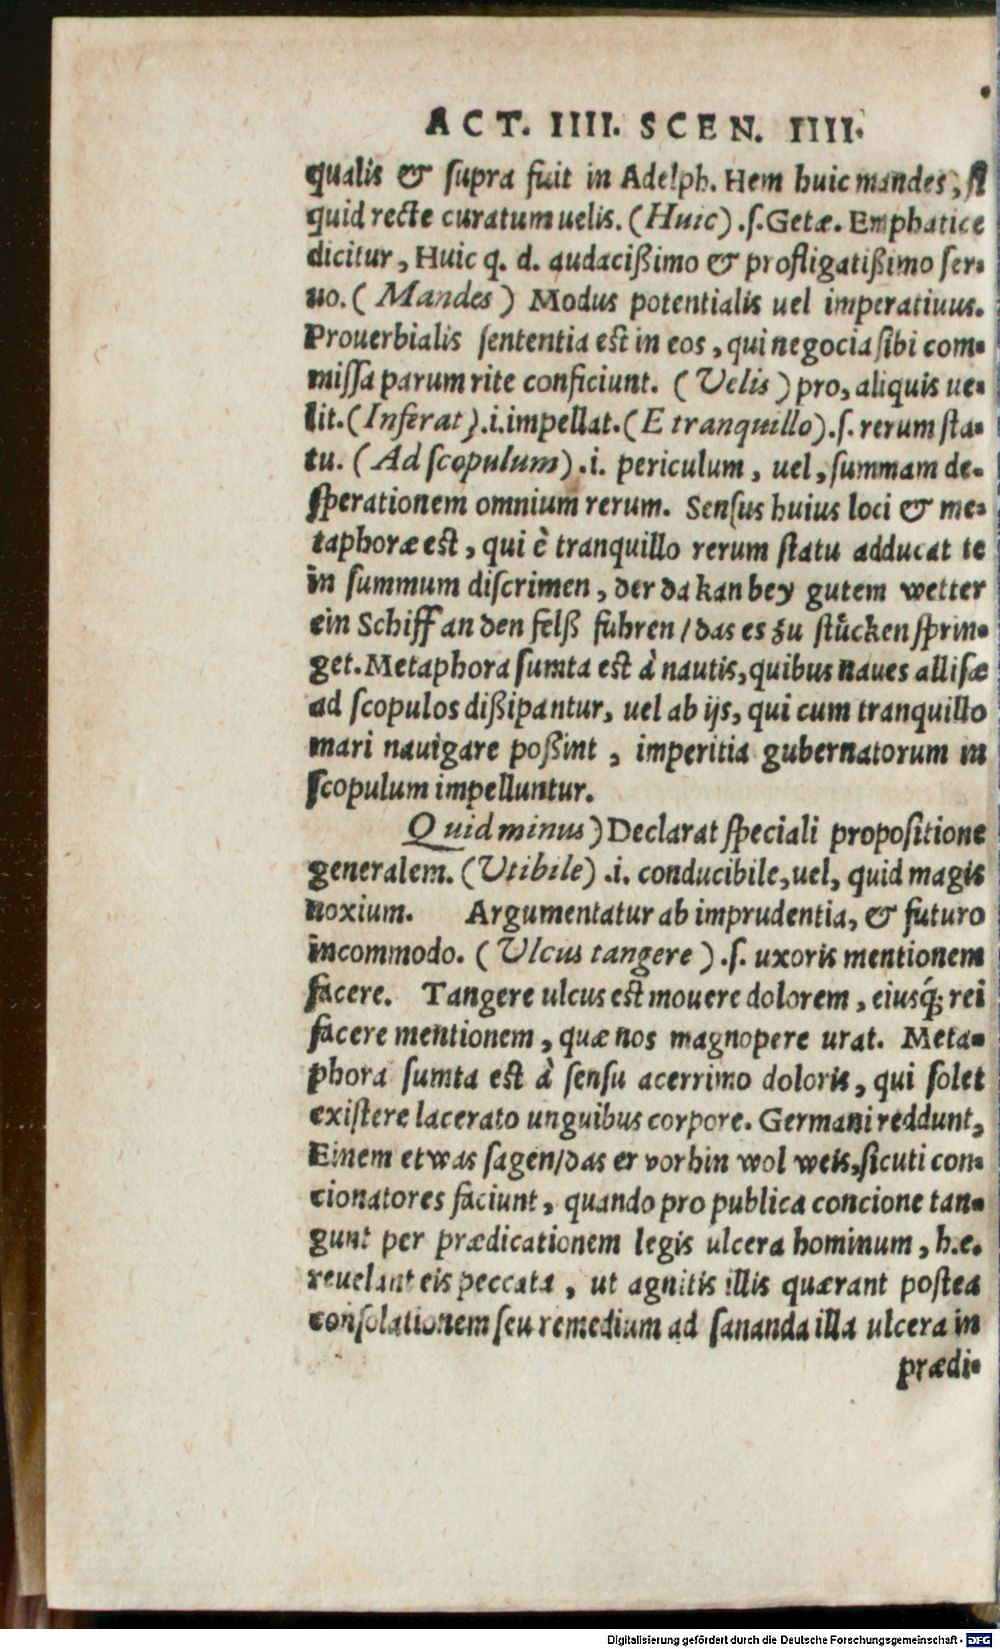 ACT. IIII. SCEN. IIII.
qualis & supra fuit in Adelph. Hem huic mandes, si
quid recte curatum uelis. (Huic) .s. Getæ. Emphatice
dicitur, Huic q. d. audacißimo & profligatißimo ser-
uo. (Mandes) Modus potentialis uel imperatiuus.
Prouerbialis sententia est in eos, qui negocia sibi com-
missa parum rite conficiunt. (Velis) pro, aliquis ue-
lit. (Inferat) .i. impellat. (E tranquillo) .s. rerum sta-
tu. (Ad scopulum) .i. periculum, uel, summam de-
sperationem omnium rerum. Sensus huius loci & me-
taphoræ est, qui è tranquillo rerum statu adducat te
in summum discrimen, der da kan bey gutem wetter
ein Schiff an den felß führen / das es zu stücken sprin-
get. Metaphora sumta est à nautis, quibus naues allisæ
ad scopulos dißipantur, uel ab ijs, qui cum tranquillo
mari nauigare poßint, imperitia gubernatorum in
scopulum impelluntur.
Quid minus) Declarat speciali propositione
generalem. (Vtibile) .i. conducibile, uel, quid magis
noxium. Argumentatur ab imprudentia, & futuro
incommodo. (Vlcus tangere) .s. uxoris mentionem
facere. Tangere ulcus est mouere dolorem, eiusq́; rei
facere mentionem, quæ nos magnopere urat. Meta-
phora sumta est à sensu acerrimo doloris, qui solet
existere lacerato unguibus corpore. Germani reddunt,
Einem etwas sagen / das er vorhin wol weis, sicuti con-
cionatores faciunt, quando pro publica concione tan-
gunt per prædicationem legis ulcera hominum, h.e.
reuelant eis peccata, ut agnitis illis quærant postea
consolationem seu remedium ad sananda illa ulcera in
prædi-
Digitalisierung gefördert durch die Deutsche Forschungsgemeinschaft - DFG